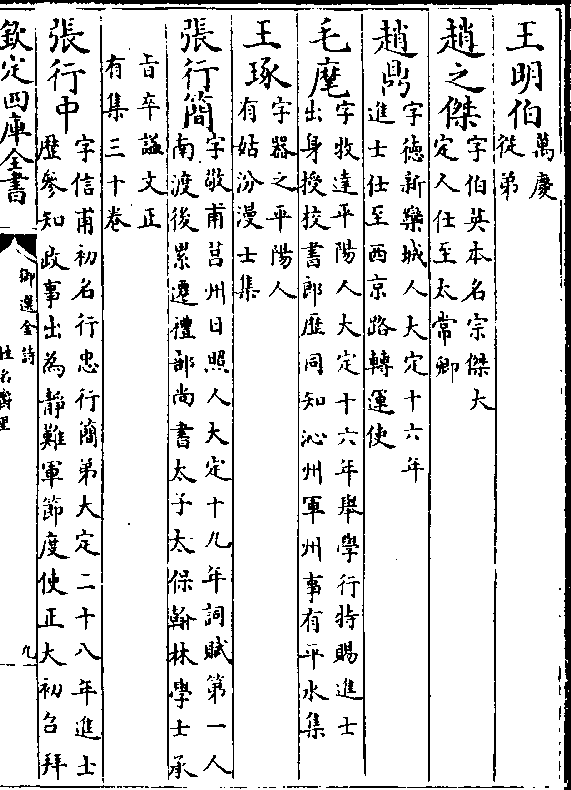 王明伯
萬慶
從弟
趙之傑
字伯英本名宗傑大
定人仕至太常卿
趙鼎
字德新欒城人大定十六年
進士仕至西京路轉運使
毛麾
字牧達平陽人大定十六年舉學行特賜進士
出身授校書郎歷同知沁州軍州事有平水集
王琢
字器之平陽人
有姑汾漫士集
張行簡
字敬甫莒州日照人大定十九年詞賦第一人
南渡後累遷禮部尚書太子太保翰林學士承
旨卒諡文正
有集三十卷
張行中
字信甫初名行忠行簡弟大定二十八年進士
歷參知政事出為靜難軍節度使正大初召拜
欽定四庫全書
御選金詩
姓名爵里
九